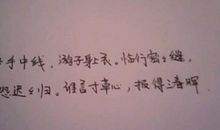 手中线，游子身上衣。临行密密缝，
恐迟迟归。谁言寸草心，报得三春晖